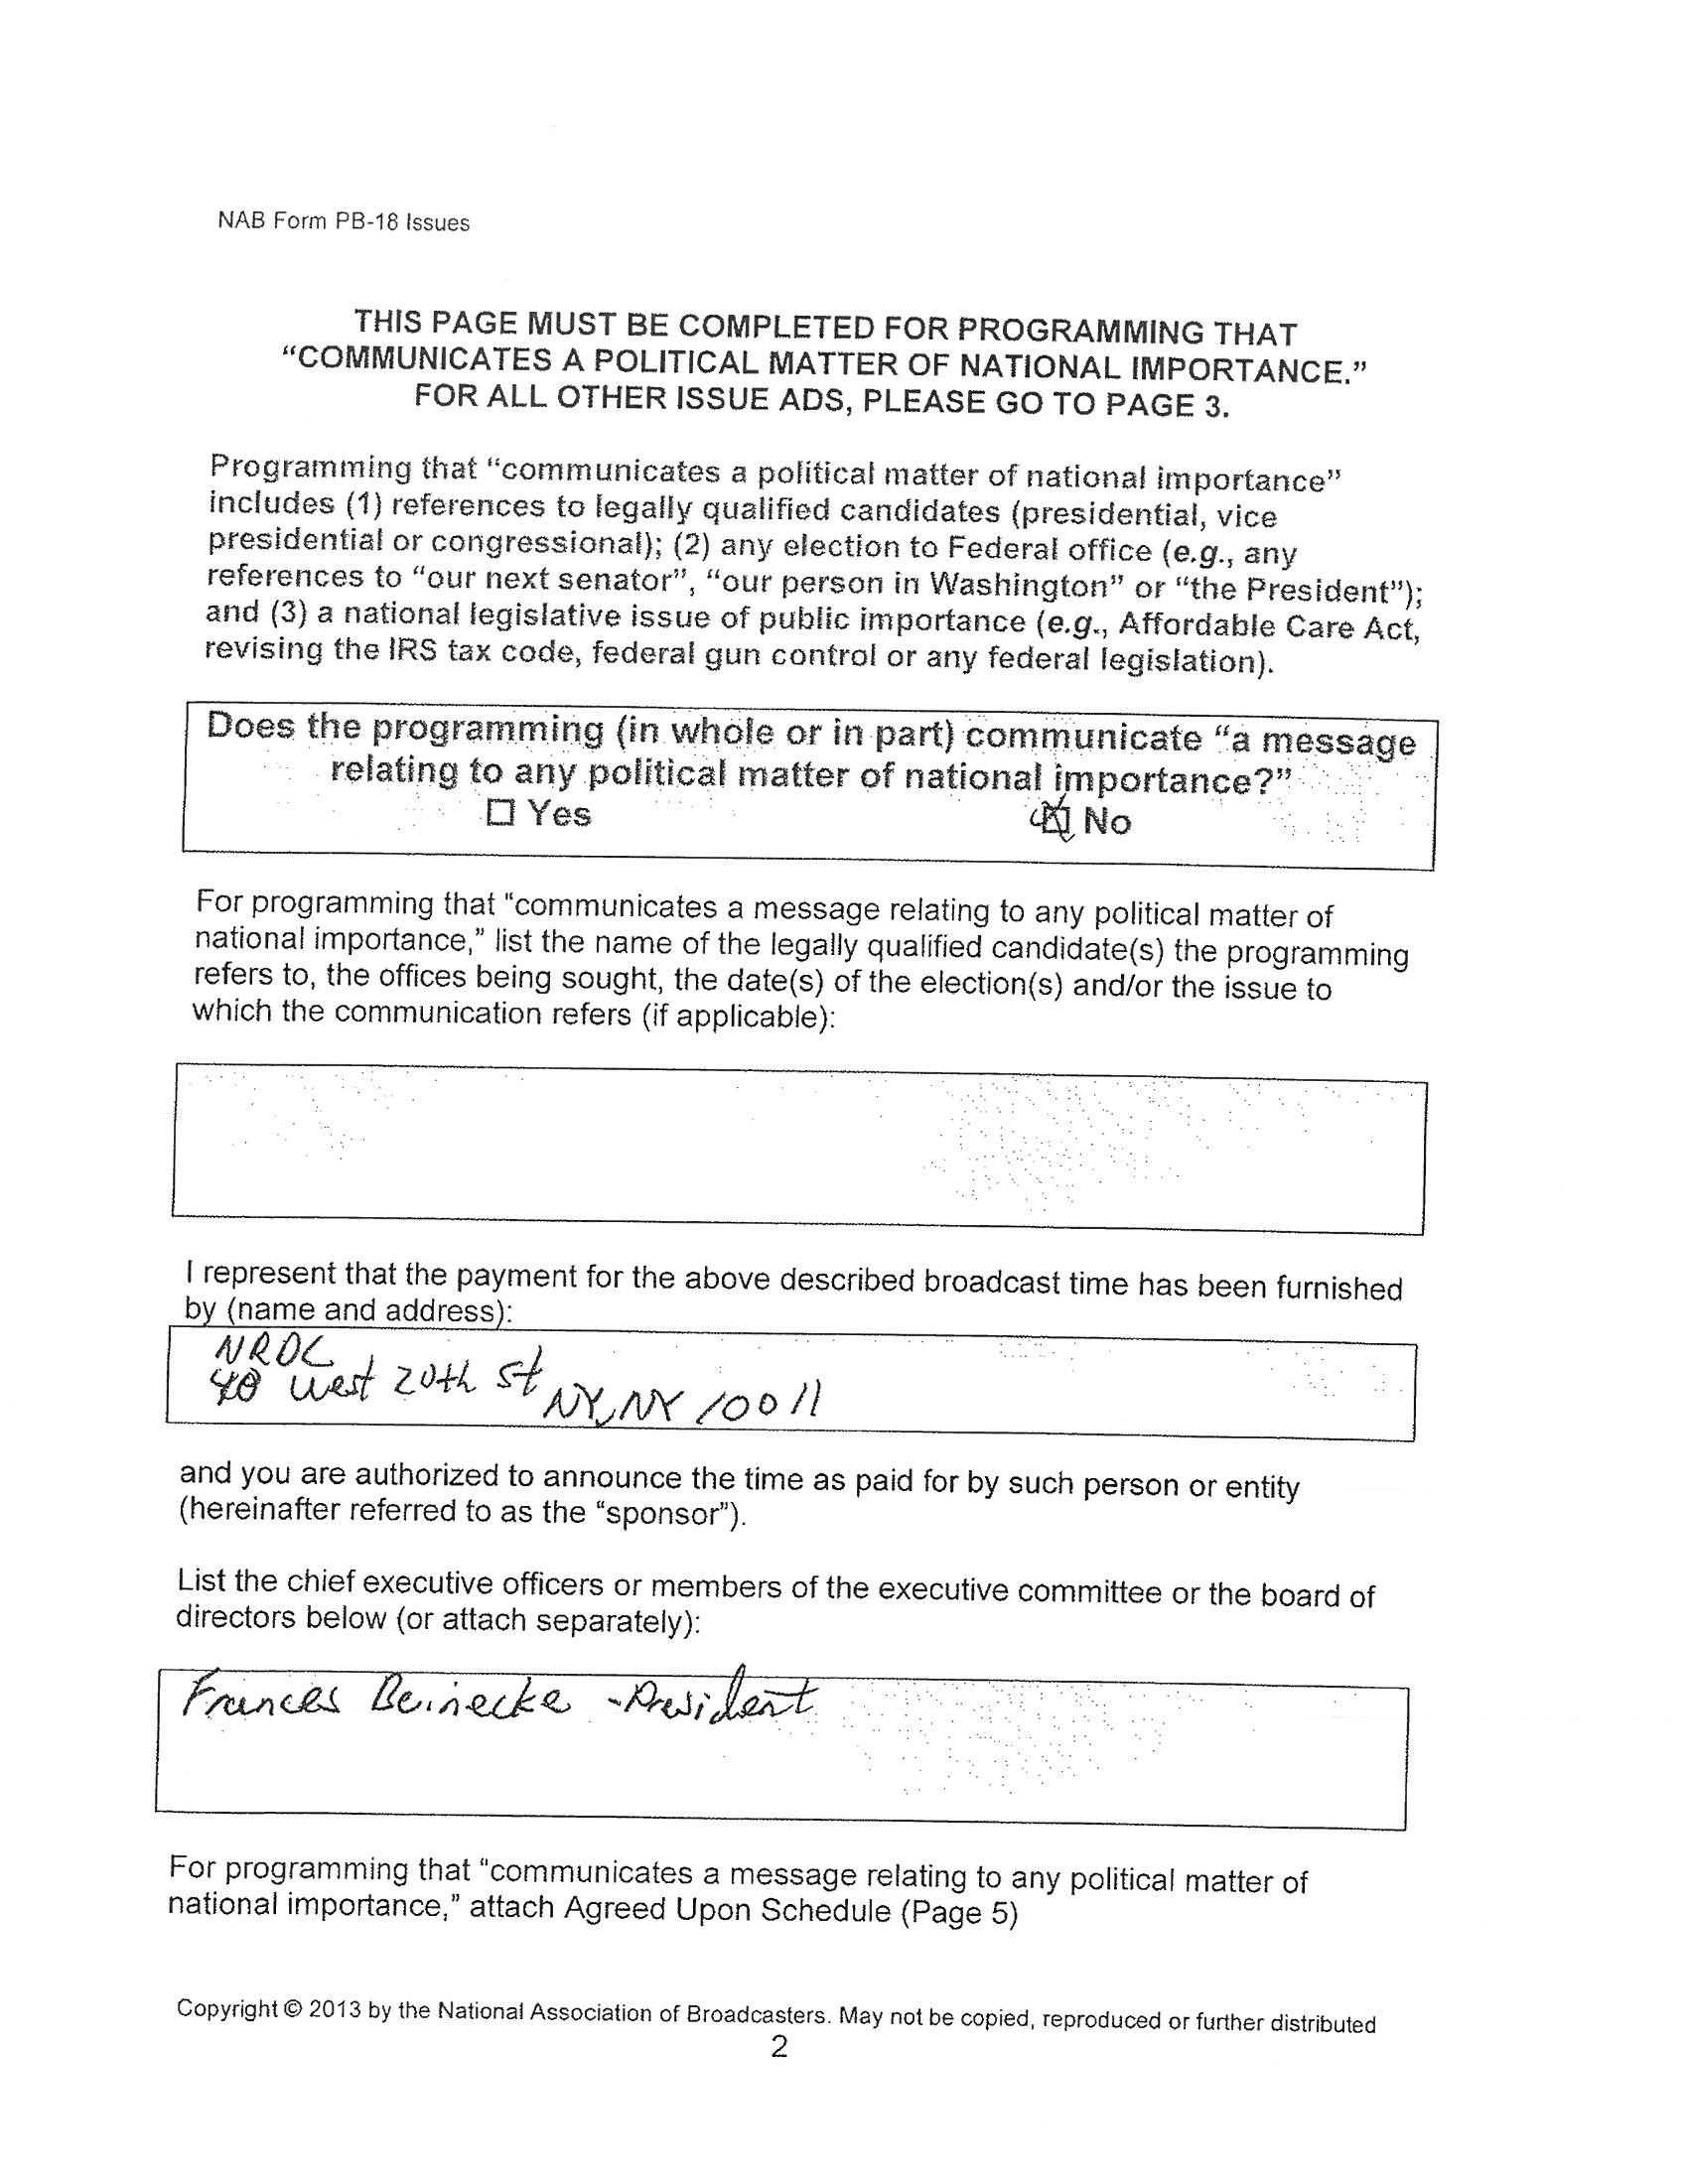 NAB Form PB-18 Issues
THIS PAGE MUST BE COMPLETED FOR PROGRAMMING THAT
“COMMUNICATES A POLITICAL MATTER OF NATIONAL IMPORTANCE.”
FOR ALL OTHER ISSUE ADS, PLEASE GO TO PAGE 3.
Programming that “communicates a political matter of national importance”
includes (1) references to legally qualified candidates (presidential, vice
presidential or congressional); (2) any election to Federal office (e.g., any
references to “our next senator”, “our person in Washington” or “the President”);
and (3) a national legislative issue of public importance (e.g., Affordable Care Act,
revising the IRS tax code, federal gun control or any federal legislation).
Does the programming (in whole or in part) communicate “a message
relating to any political matter of national importance?”
☐ Yes ☒ No
For programming that “communicates a message relating to any political matter of
national importance,” list the name of the legally qualified candidate(s) the programming
refers to, the offices being sought, the date(s) of the election(s) and/or the issue to
which the communication refers (if applicable):
I represent that the payment for the above described broadcast time has been furnished
by (name and address):
NRDC
40 West 20th St NY, NY 10011
and you are authorized to announce the time as paid for by such person or entity
(hereinafter referred to as the “sponsor”).
List the chief executive officers or members of the executive committee or the board of
directors below (or attach separately):
Frances Beinecke - President
For programming that “communicates a message relating to any political matter of
national importance,” attach Agreed Upon Schedule (Page 5)
Copyright © 2013 by the National Association of Broadcasters. May not be copied, reproduced or further distributed
2